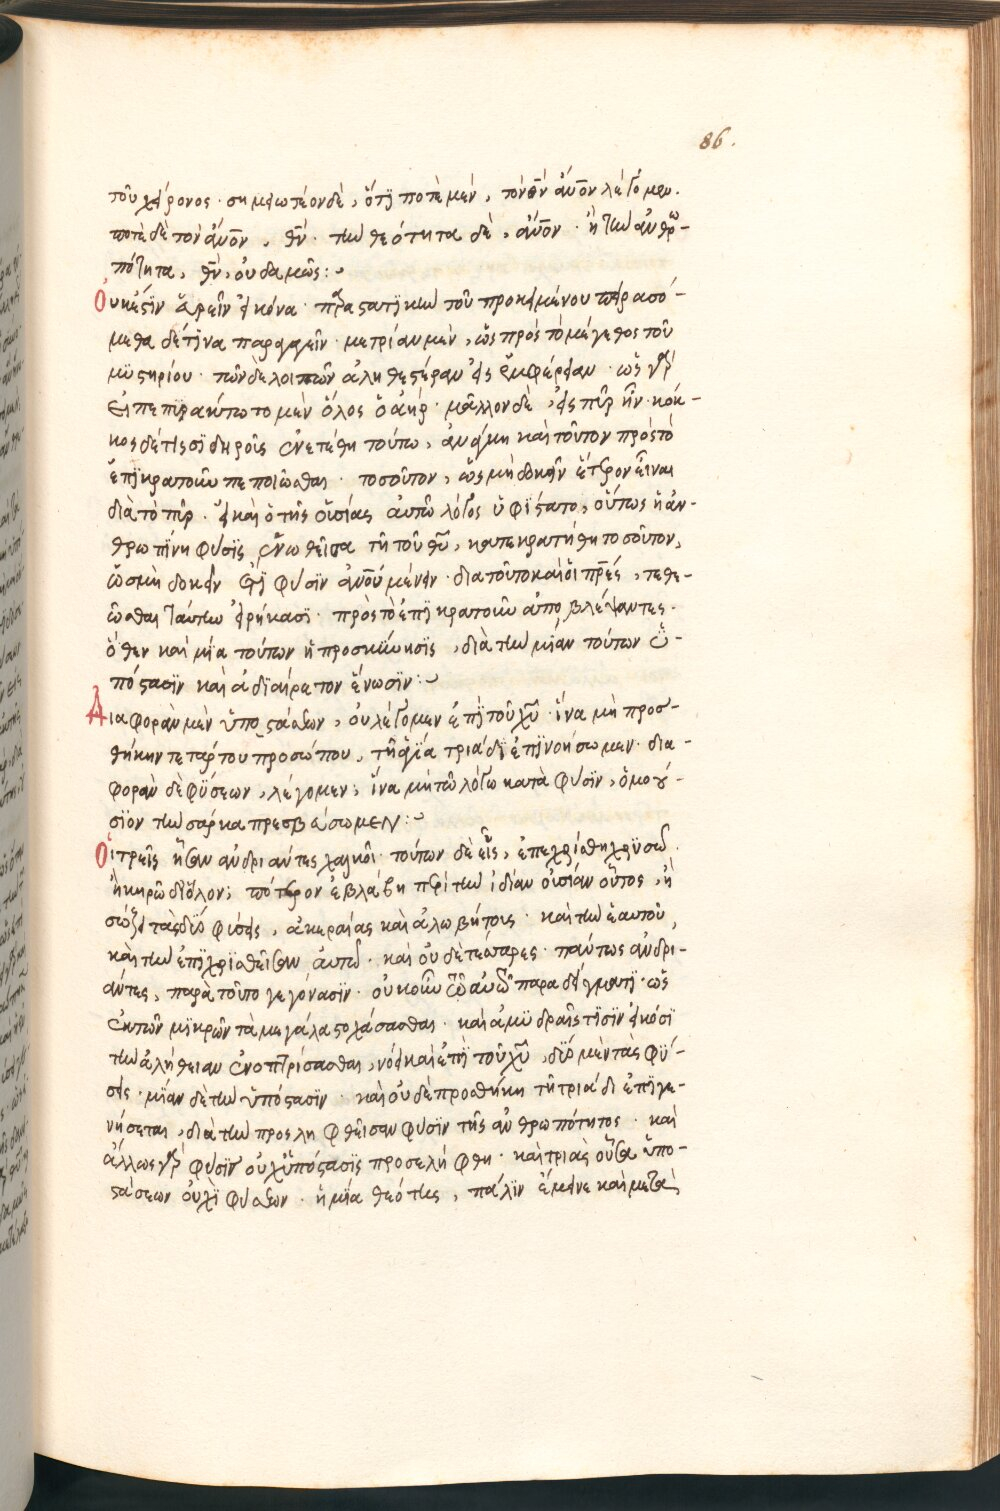 86.
τοῦ χείρονος· σημειωτέον δὲ, ὅτϊ ποτὲ μὲν, τὸν θν̅ ἄνον λέγομεν.
ποτὲ δὲ τὸν ἄνον, θν̅· τὴν θεότητα δὲ, ἄνον· ἢ τὴν ἀνθρω-
πότητα, θν̅, οὐδαμῶς:
Οὐκ ἔςϊν εὑρεῖν εἰκόνα· πρὸς ατϊκὴν τοῦ προκειμένου πειρασό-
μεθα δέ τϊνα παραγαγεῖν· μετρίαν μὲν, ὡς πρὸς τὸ μέγεθος τοῦ
μϋςηρίου· τῶν δὲ λοιπῶν ἀληθεςέραν εἰς ἐμφέρειαν· ὡς γὰρ
εἰ πεπϋράκτωτο μὲν ὅλος ὁ ἀὴρ· μᾶλλον δὲ, εἰς πῦρ ἦν· κόκ-
κος δέ τις σϊδηροῦς ἐνετέθη τούτω, ἀνάγκη καὶ τοῦτον πρὸς τὸ
ἐπϊκρατοῦν πεποιῶσθαι· τοσοῦτον, ὡς μὴ δοκεῖν ἕτερον εἶναι
διὰ τὸ πῦρ· εἰ καὶ ὁ τῆς οὐσίας αὐτῶ λόγος ὑφίςατο, οὕτως ἡ ἀν-
θρωπίνη φύσϊς ἑνωθεῖσα τῆ τοῦ θυ̅, κατεκρατήθη τοσοῦτον,
ὡς μὴ δοκεῖν ἐπϊ φύσϊν ἀνου μένειν· διὰ τοῦτο καὶ οἱ πρε̅ς, τεθε-
ῶσθαι ταύτην εἰρήκασϊ· πρὸς τὸ ἐπϊκρατοῦν ἀποβλέψαντες·
ὅθεν καὶ μϊα τούτων ἡ προσκϋνησϊς, διὰ τὴν μίαν τούτων ὑ-
πόςασϊν καὶ ἀδϊαίρετον ἕνωσϊν:
Διαφορὰν μὲν ὑποςάσεων, οὐ λέγομεν ἐπϊ τοῦ χυ̅· ἵνα μὴ προσ-
θήκην τετάρτου προσώπου, τῆ ἁγία τριάδϊ ἐπϊνοήσωμεν· δια-
φορὰν δὲ φϋσεων, λέγομεν, ἵνα μὴ τῶ λόγω κατὰ φύσϊν, ὁμοού-
σϊον τὴν σάρκα πρεσβεύσωμεν:
Οἱ τρεῖς ἦσαν ἀνδριάντες χαλκοῖ· τούτων δὲ εἷς, ἐπεχρίσθη χρϋσῶ.
ἢ κηρῶ δϊόλον; πότερον ἐβλάβη περὶ τὴν ἰδίαν οὐσίαν οὗτος, ἢ
σώζει τὰς δύο φύσεις, ἀκεραίας καὶ ἀλωβήτους· καὶ τὴν ἑαυτοῦ,
καὶ τὴν ἐπϊχρϊσθεῖσαν αὐτῶ· καὶ οὐδὲ τέσσαρες· πάντως ἀνδρι-
άντες, παρὰ τοῦτο γεγόνασϊν· οὐκοῦν παραδείγματϊ· ὡς
ἐκ τῶν μϊκρῶν τὰ μεγάλα ςοχάσασθαι· καὶ ἀμϋδραῖς τϊσϊν εἰκόσϊ
τὴν ἀλήθειαν ἐνοπτρίσασθαι, νόει καὶ ἐπϊ τοῦ χυ̅, δύο μὲν τὰς φϋ-
σεις· μϊαν δὲ τὴν ὑπόςασϊν· καὶ οὐδὲ προσθήκη τῆ τριάδι ἐπϊγε-
νήσεται, διὰ τὴν προσληφθεῖσαν φύσϊν τῆς ἀνθρωπότητος· καὶ
ἄλλως γὰρ φύσϊν οὐχ ὑπόςασϊς προσελήφθη· καὶ τριὰς οὖσα ὑπο-
ςάσεων οὐχϊ φύσεων· ἡ μία θεότης, πάλϊν ἔμεινε καὶ μετὰ